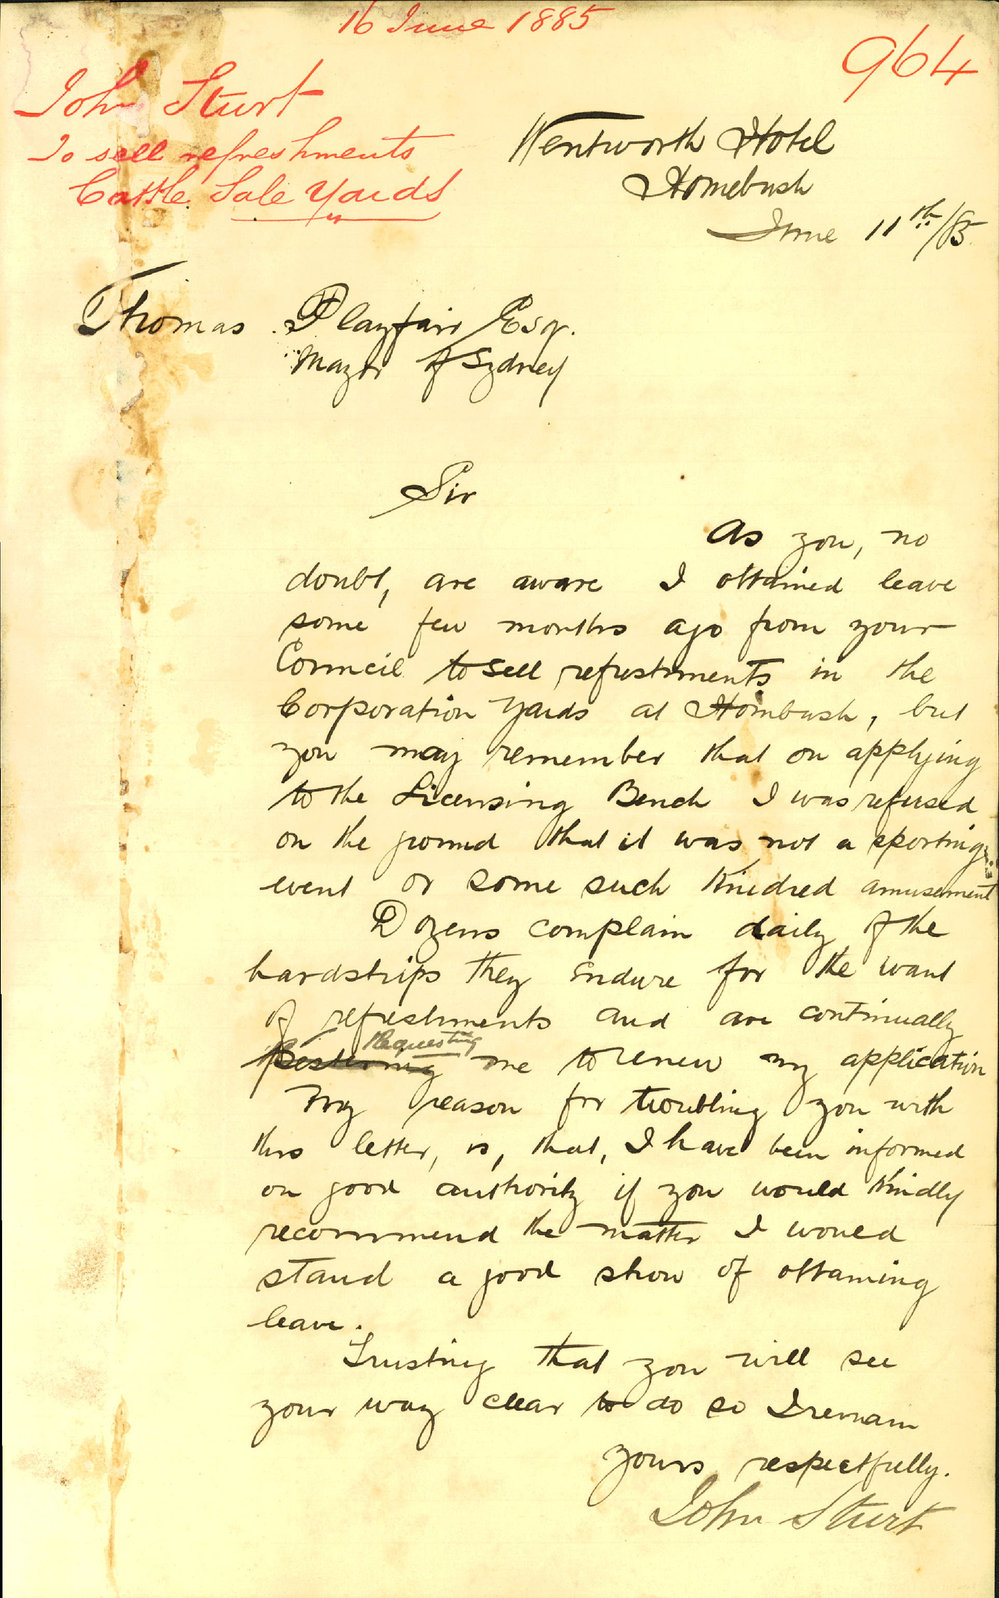 16 June 1885
964
John Sturt
To sell refreshments
Cattle Sale Yards
Wentworth Hotel
Homebush
June 11th/85
Thomas Playfair Esqr.
Mayor of Sydney
Sir
As you, no
doubt, are aware I obtained leave
some few months ago from your
Council to sell refreshments in the
Corporation Yards at Hombush, but
you may remember that on applying
to the Licensing Bench I was refused
on the ground that it was not a sporting
event or some such kindred amusement
Dozens complain daily of the
hardships they endure for the want
of refreshments and are continually
requesting
Pestering me to renew my application
My reason for troubling you with
this letter, is, that, I have been informed
on good authority if you would kindly
recommend the matter I would
stand a good show of obtaining
leave.
Trusting that you will see
your way clear to do so I remain
yours respectfully.
John Sturt